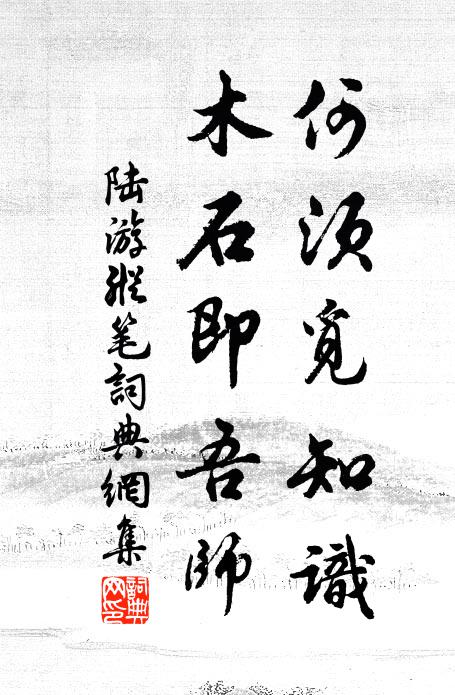 何須覓知識
木石即吾師
陸游縱笔詞典網集
詞典网印